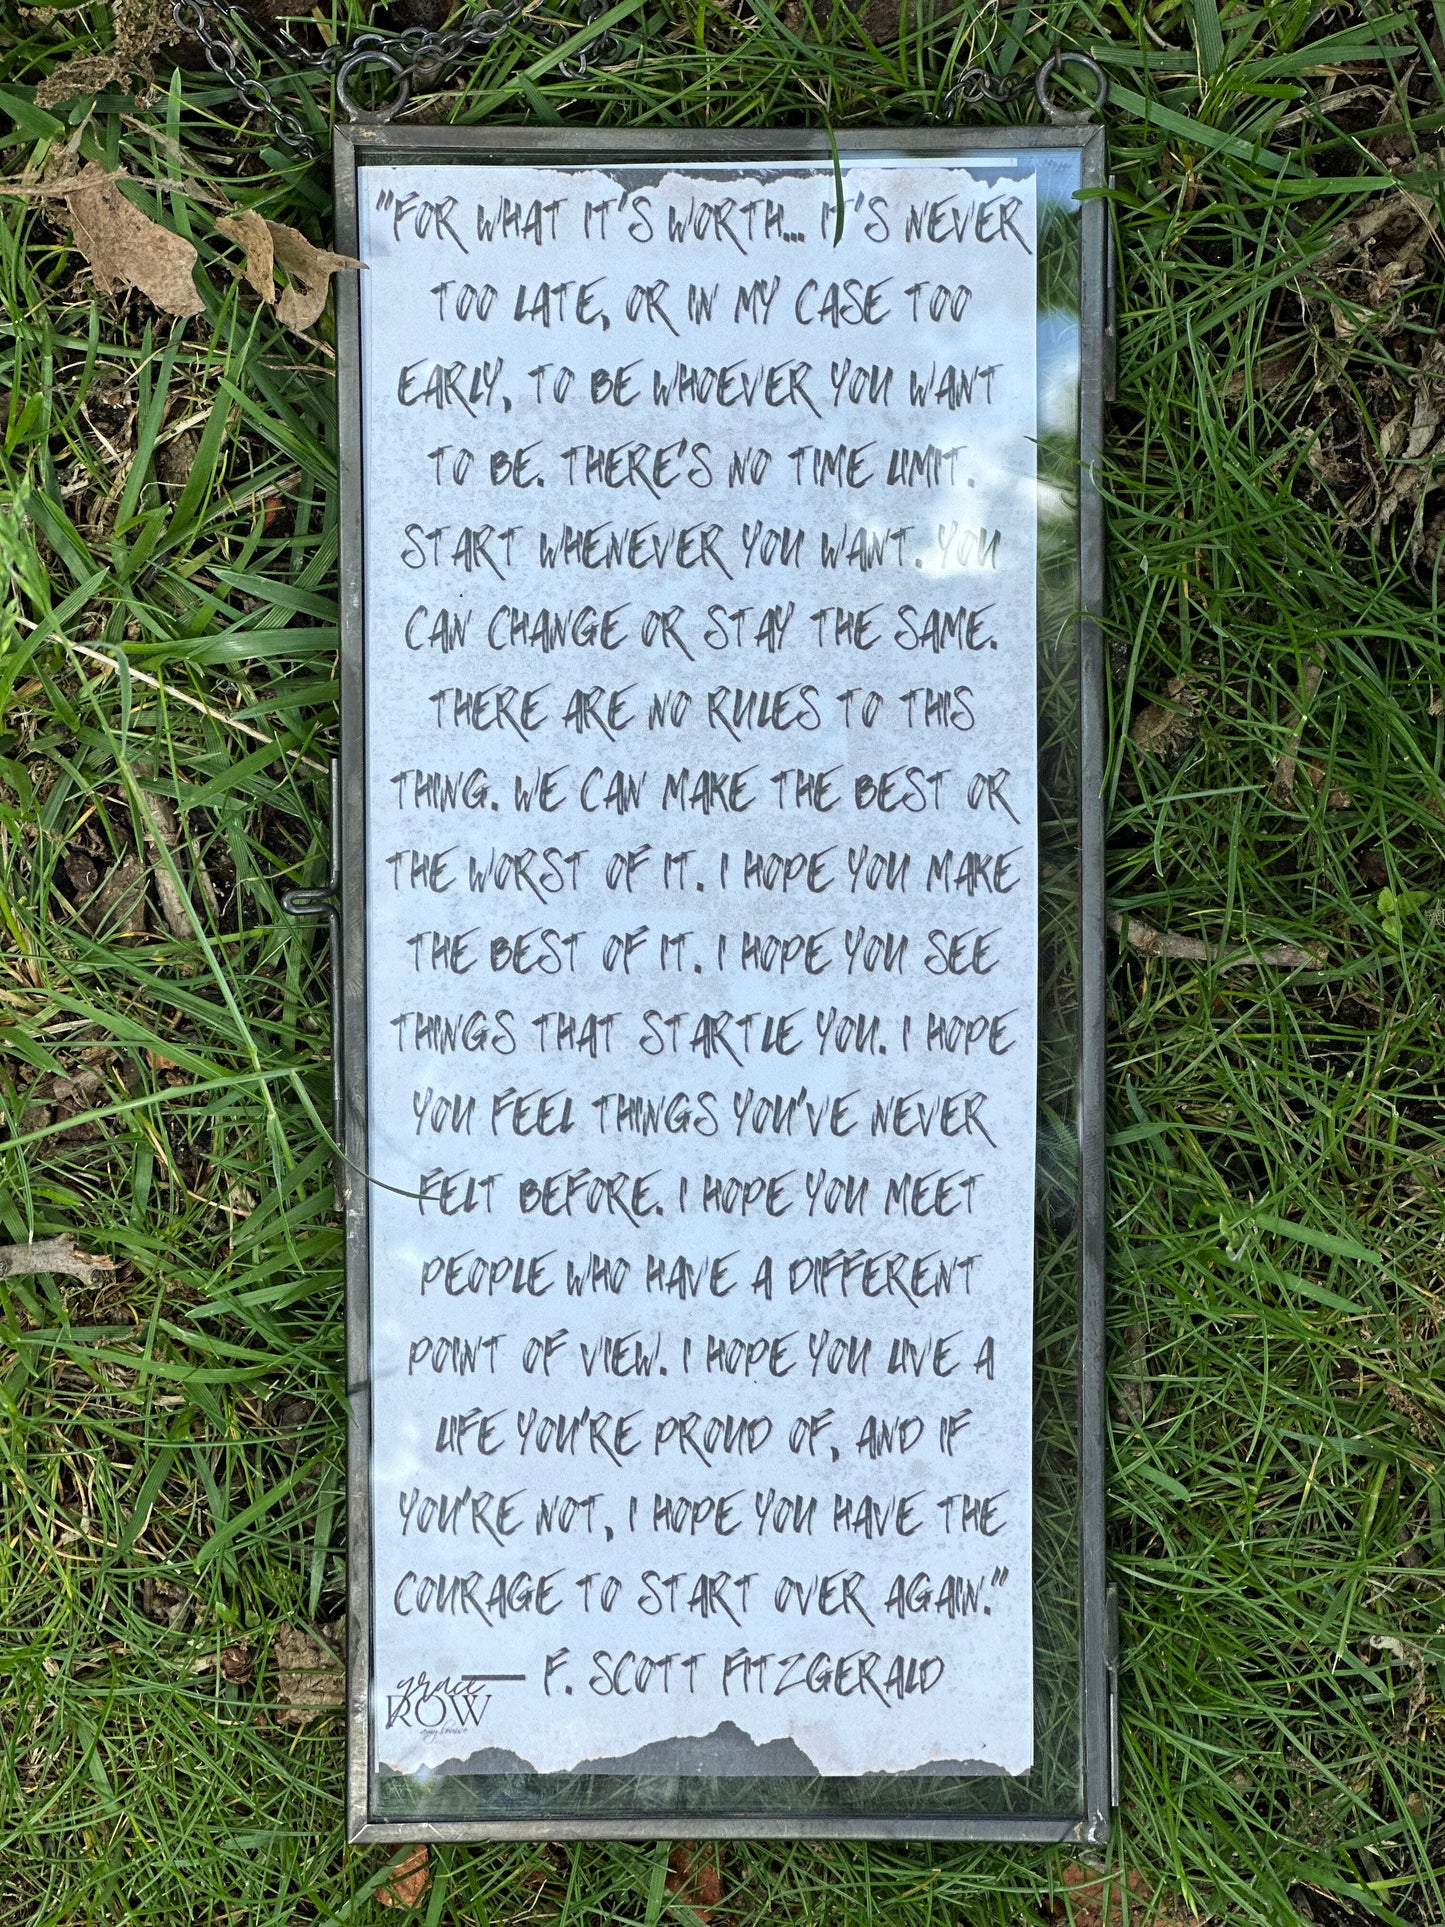 "FOR WHAT IT'S WORTH... IT'S NEVER
TOO LATE, OR IN MY CASE TOO
EARLY, TO BE WHOEVER YOU WANT
TO BE. THERE'S NO TIME LIMIT.
START WHENEVER YOU WANT. YOU
CAN CHANGE OR STAY THE SAME.
THERE ARE NO RULES TO THIS
THING. WE CAN MAKE THE BEST OR
THE WORST OF IT. I HOPE YOU MAKE
THE BEST OF IT. I HOPE YOU SEE
THINGS THAT STARTLE YOU. I HOPE
YOU FEEL THINGS YOU'VE NEVER
FELT BEFORE. I HOPE YOU MEET
PEOPLE WHO HAVE A DIFFERENT
POINT OF VIEW. I HOPE YOU LIVE A
LIFE YOU'RE PROUD OF, AND IF
YOU'RE NOT, I HOPE YOU HAVE THE
COURAGE TO START OVER AGAIN."
— F. SCOTT FITZGERALD
grace
ROW